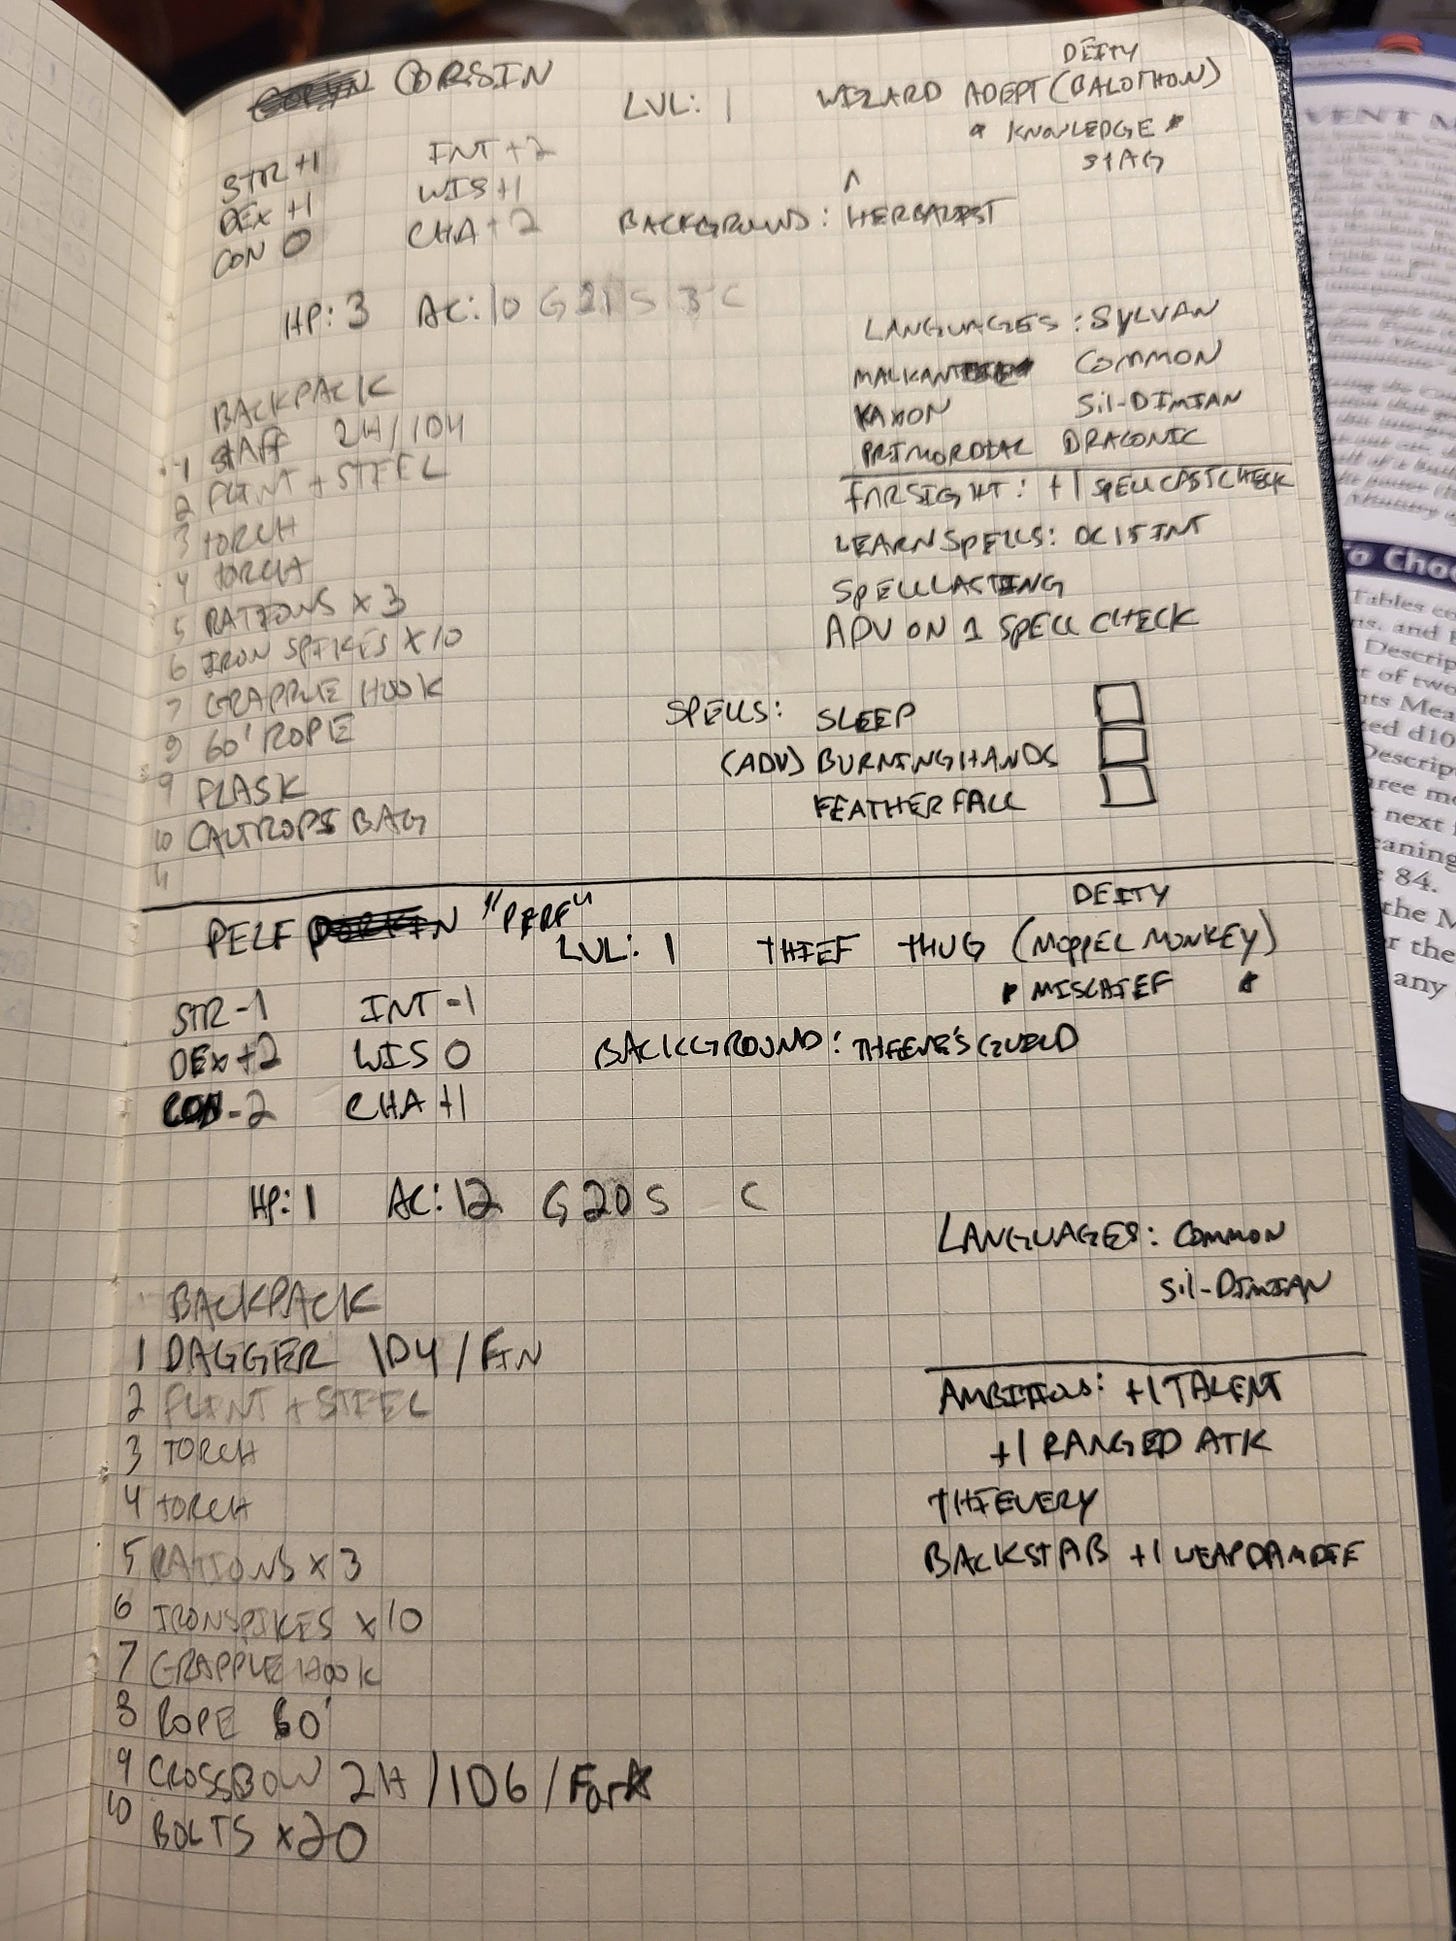 CORSIN
LVL: 1 WIZARD ADEPT (BALOTHON)
DEITY
* KNOWLEDGE *
STAG
STR +1 INT +2
DEX +1 WIS +1
CON 0 CHA +2
BACKGROUND: HERBALIST
HP: 3 AC: 10 G 21 S 3 C
LANGUAGES: SYLVAN
MALKANT COMMON
KAXON Sil-DIMIAN
PRIMORDIAL DRACONIC
FARSIGHT: +1 SPELLCAST CHECK
LEARN SPELLS: DC 15 INT
SPELLCASTING
ADV ON 1 SPELL CHECK
BACKPACK
1 STAFF 2H/1D4
2 FLINT + STEEL
3 TORCH
4 TORCH
5 RATIONS X 3
6 IRON SPIKES X 10
7 GRAPPLE HOOK
8 60' ROPE
9 FLASK
10 CALTROPS BAG
11
SPELLS: SLEEP
(ADV) BURNING HANDS
FEATHER FALL
PELF "PFRF"
LVL: 1 THIEF THUG (MOPPEL MONKEY)
DEITY
* MISCHIEF *
STR -1 INT -1
DEX +2 WIS 0
CON -2 CHA +1
BACKGROUND: THIEVE'S GUILD
HP: 1 AC: 12 G 20 S C
LANGUAGES: COMMON
Sil-DIMIAN
AMBITIOUS: +1 TALENT
+1 RANGED ATK
THIEVERY
BACKSTAB +1 WEAP DAM DIE
BACKPACK
1 DAGGER 1D4/FIN
2 FLINT + STEEL
3 TORCH
4 TORCH
5 RATIONS X 3
6 IRON SPIKES X 10
7 GRAPPLE HOOK
8 ROPE 60'
9 CROSSBOW 2H/1D6/Far
10 BOLTS X 20